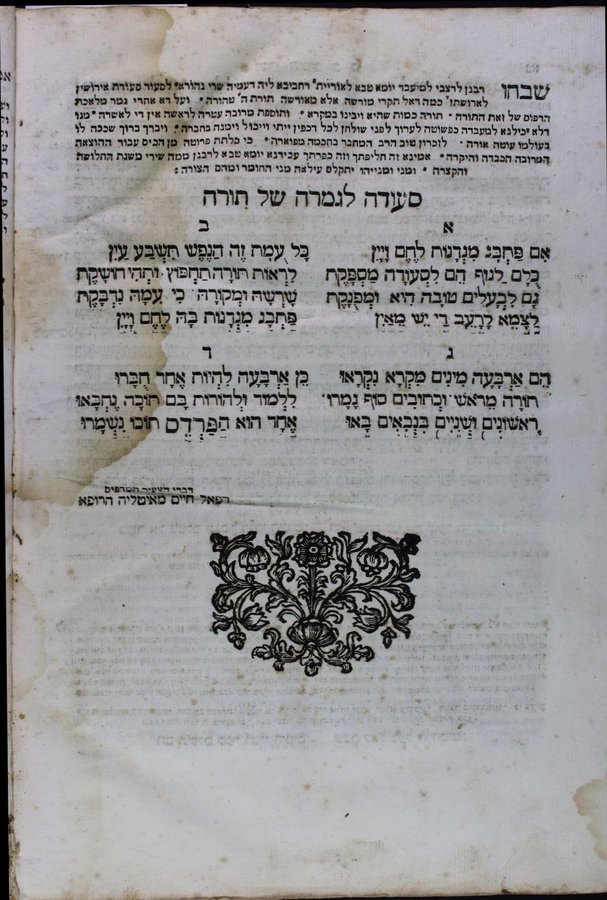 שבחו רבנן לרצבי למיעבד יומא טבא לאורייתי רחביבא ליה דעמיה שרי נהורא לסעוד סעודת אירוסין
לארושתו כמה דאל תקרי מורשה אלא מאורשה תורת ה' טהורה ועל דא אחרי גמר מלאכת
הדפוס של זאת התורה תורה כמות שהיא ויבינו במקרא ותוספת מרובה עטרה לראשה אין די לאשרה
דלא כילנא למעבדה כפשוטה לערוך לפני שולחן לכל דכפין ייתי וייכול וימנה בחברה ויברך ברוך שככה לו
בעולמו עוטה אורה לזכרון טוב הרב המחבר בחכמה מפוארה כי כלתה פרוטה מן הכיס עבור ההוצאה
המרובה הכבדה והיקרה אמינא זה חליפתך וזה כפרתך עבידנא יומא טבא לרבנן ממה שירי משנת התלושה
והקצרה ומני ומנייהו יתקלס עילאה מני החומר ומהם הצורה :
סעודה לגמרה של תורה
א
אִם פַּתְבַּג מִגְדָּנוֹת לֶחֶם וָיַיִן
כֻּלָּם לַגּוּף הֵם לִסְעוּדָה מַסְפֶּקֶת
גַּם לִבְעָלִים טוֹבָה הִיא וּמְפַנֶּקֶת
לַצָּמֵא לָרָעֵב דַּי יֵשׁ מֵאַיִן
ב
כָּל עֻמַּת זֶה הַנֶּפֶשׁ תִּשְׂבַּע עַיִן
לִרְאוֹת תּוֹרָה תַחְפּוֹץ וּתְהִי חוֹשֶׁקֶת
שָׁרְשָׁהּ וּמְקוֹרָהּ כִּי עִמָּהּ נִדְבֶּקֶת
פַּתְבַּג מִגְדָּנוֹת בָּהּ לֶחֶם וָיַיִן
ג
הֵם אַרְבָּעָה מִינִים מִקְרָא נִקְרָאוּ
תּוֹרָה מֵרֹאשׁ וּכְתוּבִים סוֹף גָּמָרוּ
רִאשׁוֹנִים וּשְׁנִיִּים בִּנְבִאִים בָּאוּ
ד
כֵּן אַרְבָּעָה לִהְיוֹת אֶחָד חֻבָּרוּ
לִלְמוֹד וּלְהוֹרוֹת בָּם תּוֹכָהּ נֶחְבָּאוּ
אֶחָד הוּא הַפַּרְדֵּס תּוֹכוֹ נִשְׁמָרוּ
דברי הצעיר המרפיס
רפאל חיים מאיטליה הרופא